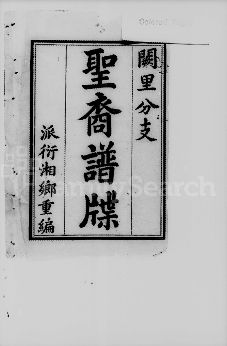 闕里分支
聖裔譜牒
派衍湘鄉重編
FamilySearch